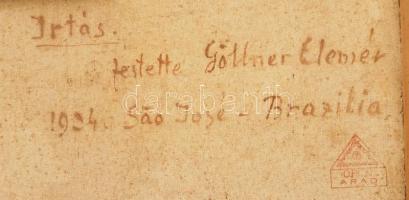 Irtás.
festette Göllner Elemér
1934. São José - Brazilia.
ARAD